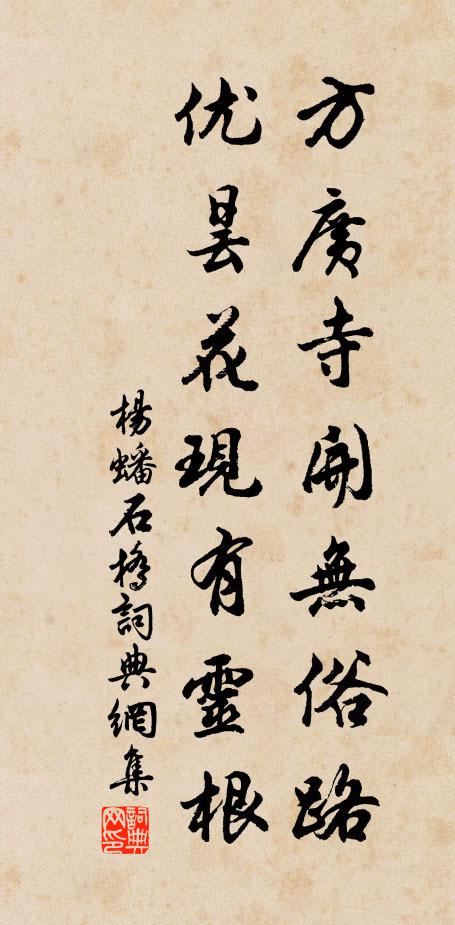 方廣寺開無俗路
优曇花現有靈根
楊蟠石橋詞典網集
詞典网印